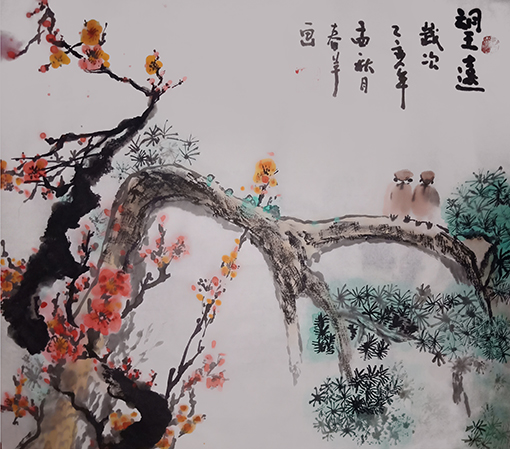 望遠
歲次
乙亥年
秋月
春羊
画